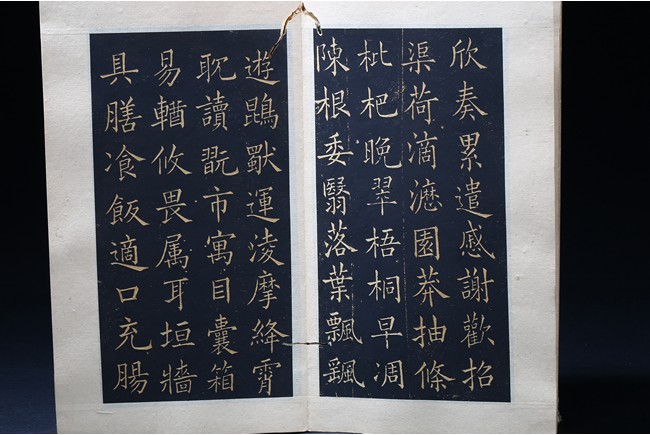 欣奏累遣慼謝歡招
渠荷滴瀝園莽抽條
枇杷晚翠梧桐早凋
陳根委翳落葉飄颻
遊鵾獨運淩摩絳霄
耽讀翫市寓目囊箱
易輶攸畏属耳垣牆
具膳飡飯適口充腸